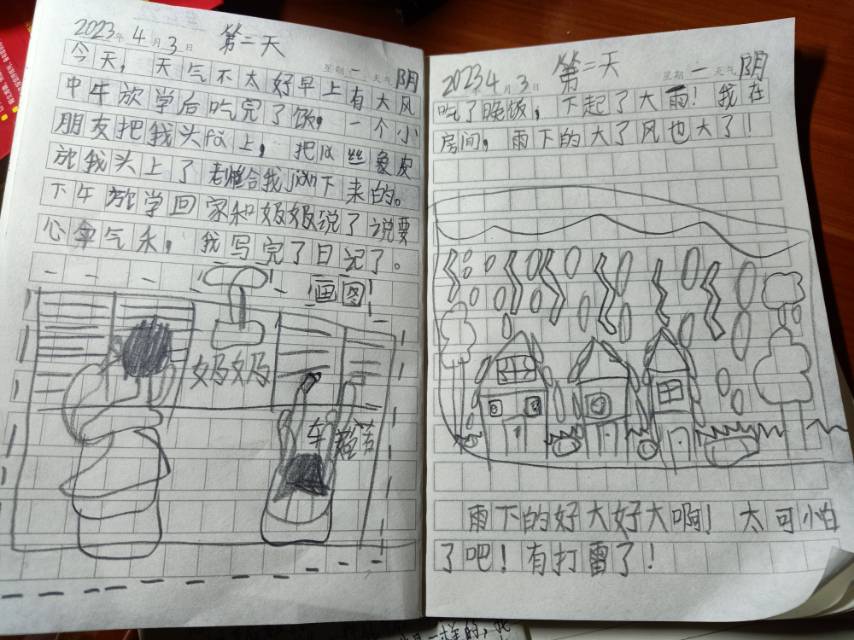 2023年4月3日 第二天 星期一 天气阴
今天，天气不太好早上有大风
中午放学后吃完了饭，一个小
朋友把我头fà上，把fà丝象皮
放我头上了老师给我jiǎn下来的。
下午放学回家和妈妈说了说要
心拿气永，我写完了日记了。
画图!
妈妈
车
2023年4月3日 第二天 星期一 天气阴
吃了晚饭，下起了大雨！我在
房间，雨下的大了风也大了！
雨下的好大好大啊！太可小白
了吧！有打雷了！